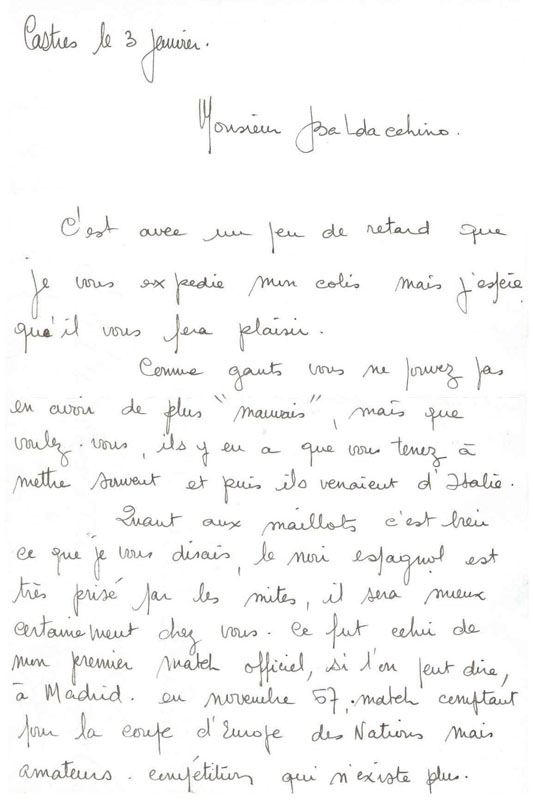 Castres le 3 Janvier.
Monsieur Baldacchino.
C'est avec un peu de retard que
je vous expedie mon colis mais j'espère
qu'il vous fera plaisir.
Comme gants vous ne pouvez pas
en avoir de plus "mauvais", mais que
voulez-vous, ils y en a que vous tenez à
mettre souvent et puis ils venaient d'Italie.
Quant aux maillots c'est bien
ce que je vous disais, le noir espagnol est
très prisé par les mites, il sera mieux
certainement chez vous. Ce fut celui de
mon premier match officiel, si l'on peut dire,
à Madrid. en novembre 67, match comptant
pour la coupe d'Europe des Nations mais
amateurs. compétition qui n'existe plus.